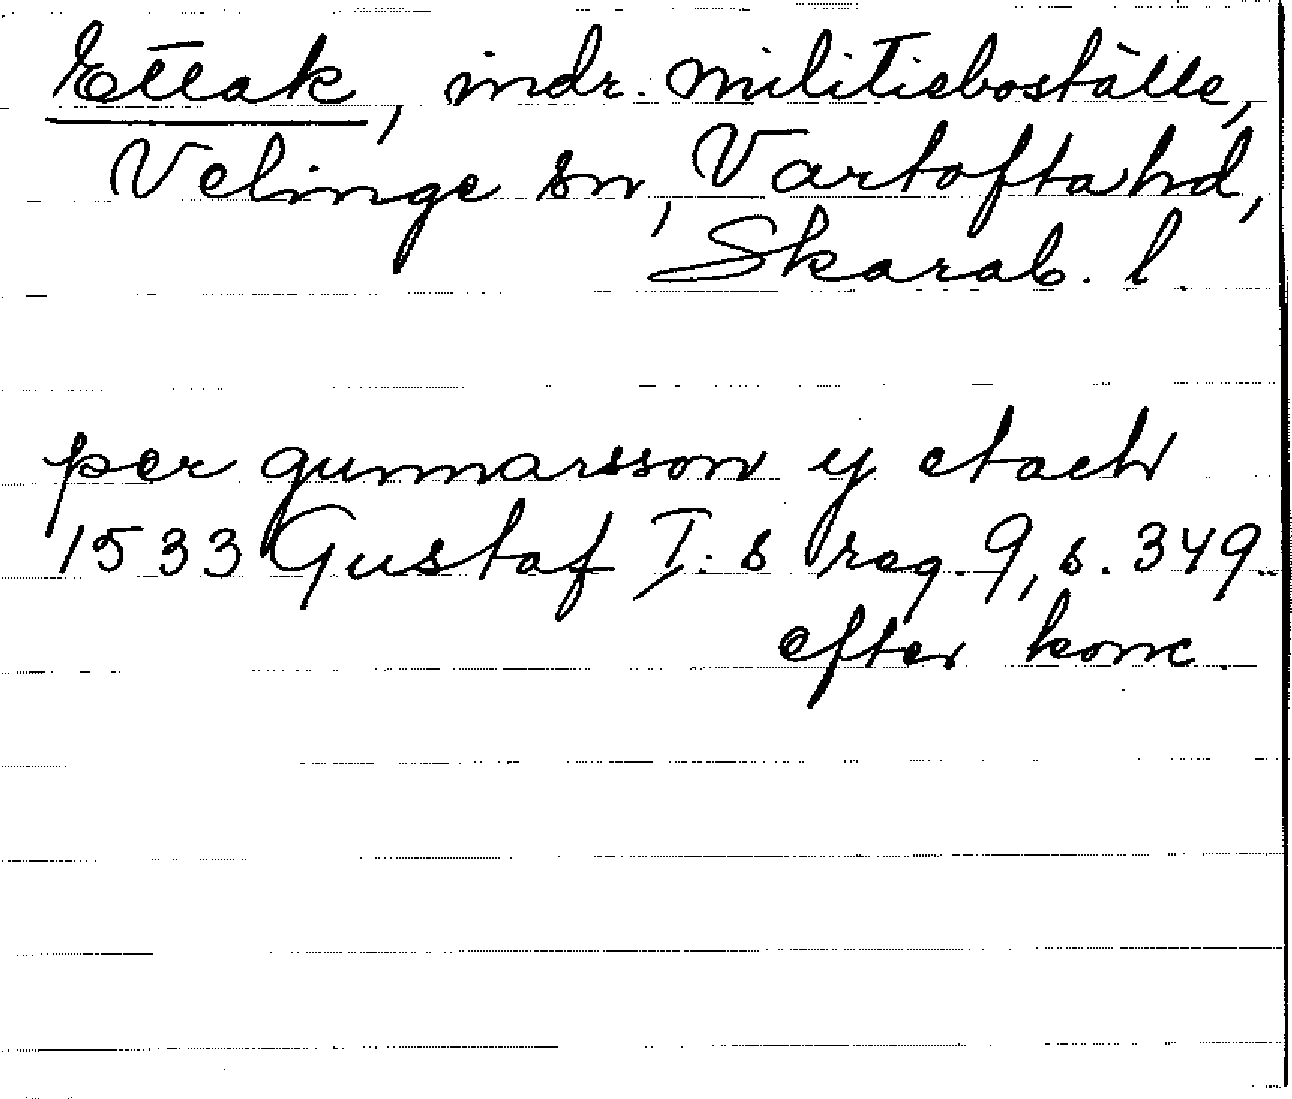 Ettak, indr. militieboställe,
Velinge sn, Vartofta hd,
Skarab. l.
per gunnarsson y etach
1533 Gustaf I:s reg. 9, s. 349.
efter konc.